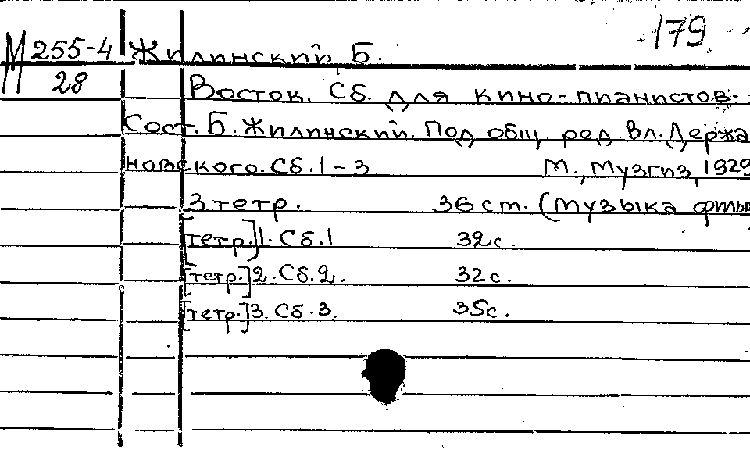 179
М 255-4 Жилинский, Б.
28 Восток. Сб. для кино-пианистов.
Сост. Б. Жилинский. Под общ. ред. Вл. Держа
новского. Сб. 1-3 М., Музгиз, 1929
3 тетр. 36 ст. (Музыка
[тетр.] 1. Сб. 1 32 с.
[тетр.] 2. Сб. 2. 32 с.
[тетр.] 3. Сб. 3. 35 с.